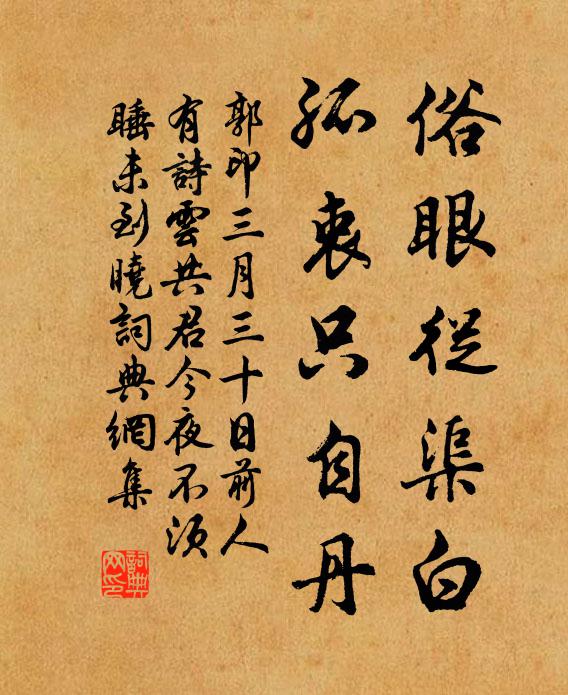 俗眼從渠白
孤衷只自丹
郭印三月三十日前人
有詩雲共君今夜不須
睡未到曉詞典網集
詞典網印